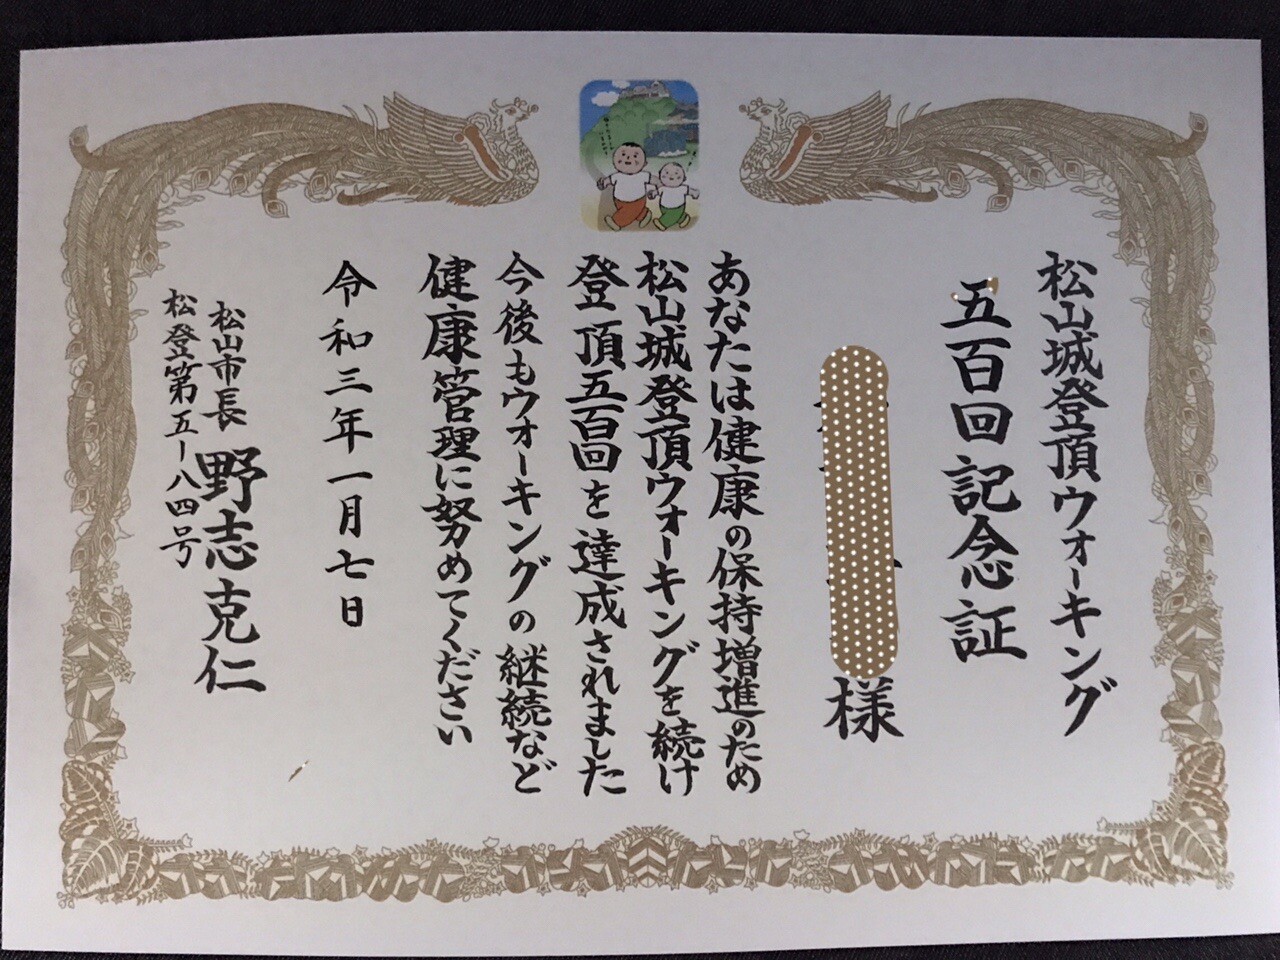 松山城登頂ウォーキング
五百回記念証
様
あなたは健康の保持増進のため
松山城登頂ウォーキングを続け
登頂五百回を達成されました
今後もウォーキングの継続など
健康管理に努めてください
令和三年一月七日
松山市長 野志克仁
松登第五-八四号